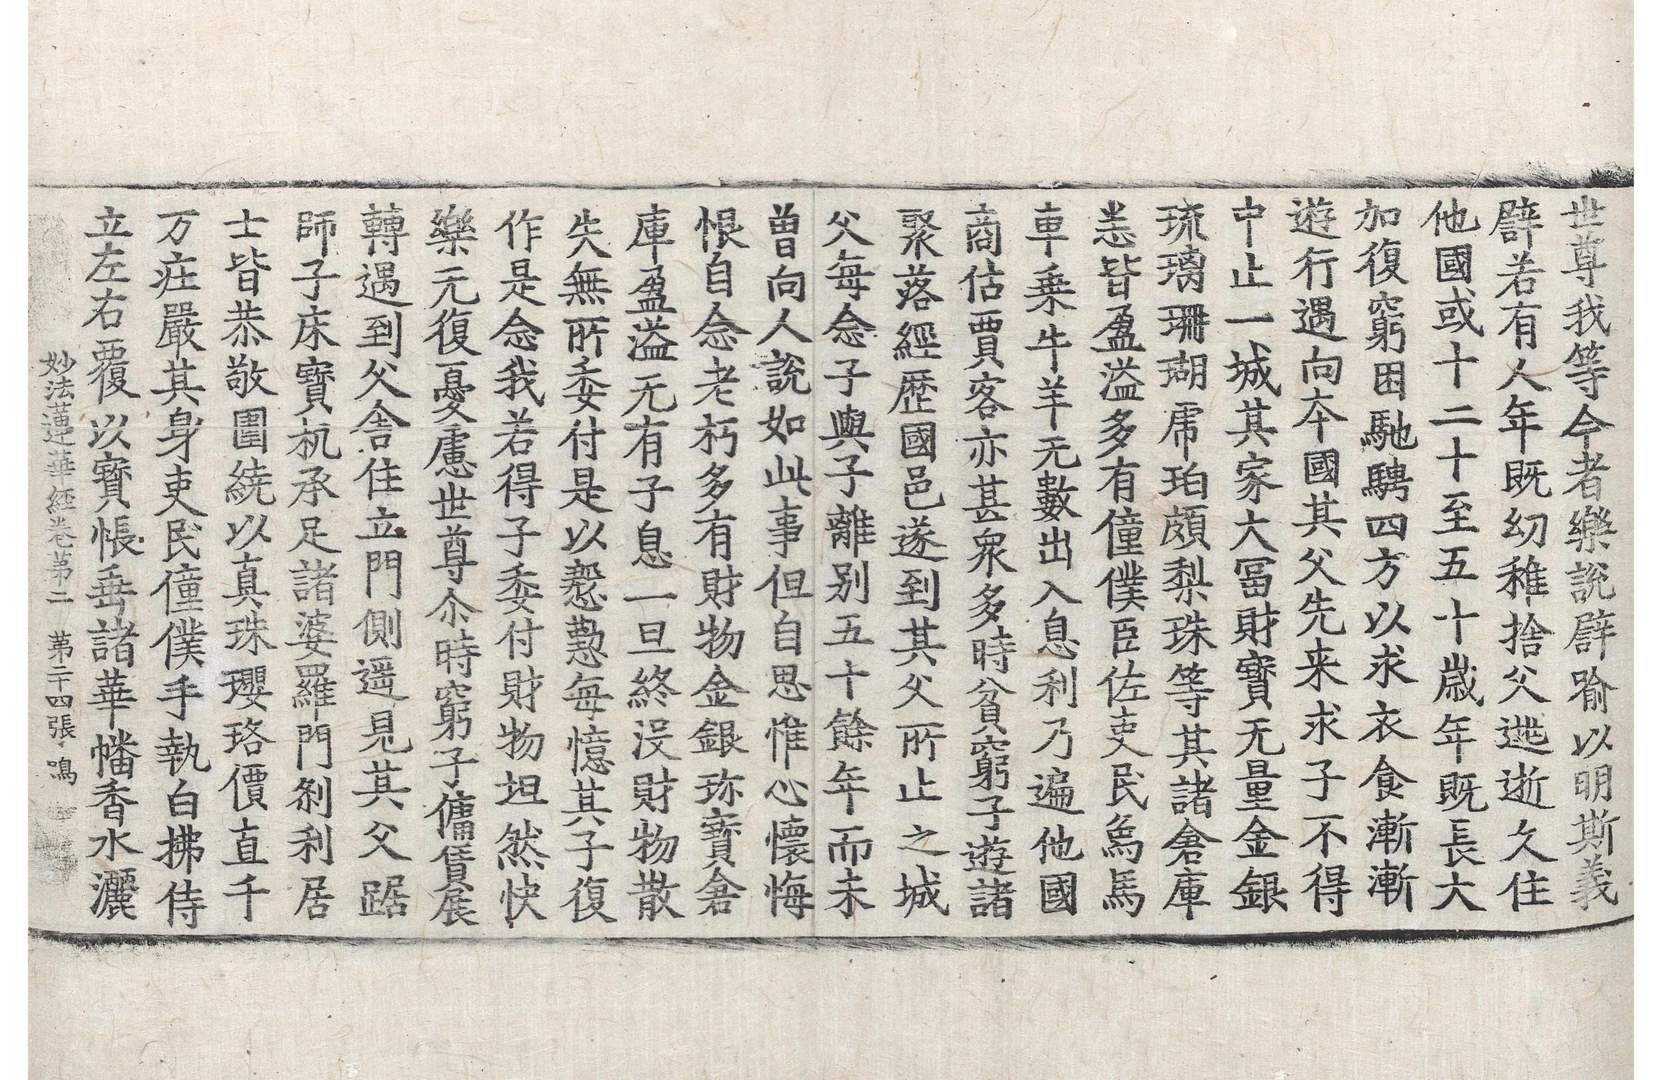 世尊我等今者樂說譬喻以明斯義
譬若有人年既幼稚捨父逃逝久住
他國或十二十至五十歲年既長大
加復窮困馳騁四方以求衣食漸漸
遊行遇向本國其父先来求子不得
中止一城其家大冨財寶无量金銀
琉璃珊瑚虎珀頗梨珠等其諸倉庫
悉皆盈溢多有僮僕臣佐吏民象馬
車乗牛羊无數出入息利乃遍他國
商估賈客亦甚衆多時貧窮子遊諸
聚落經歷國邑遂到其父所止之城
父每念子與子離別五十餘年而未
曾向人說如此事但自思惟心懷悔
恨自念老朽多有財物金銀珎寶倉
庫盈溢无有子息一旦終沒財物散
失無所委付是以慇懃每憶其子復
作是念我若得子委付財物坦然快
樂无復憂慮世尊尒時窮子傭賃展
轉遇到父舍住立門側遥見其父踞
師子床寶机承足諸婆羅門刹利居
士皆恭敬圍繞以真珠瓔珞價直千
万莊嚴其身吏民僮僕手執白拂侍
立左右覆以寶帳垂諸華幡香水灑
妙法蓮華經卷第二 第二十四張 鳴